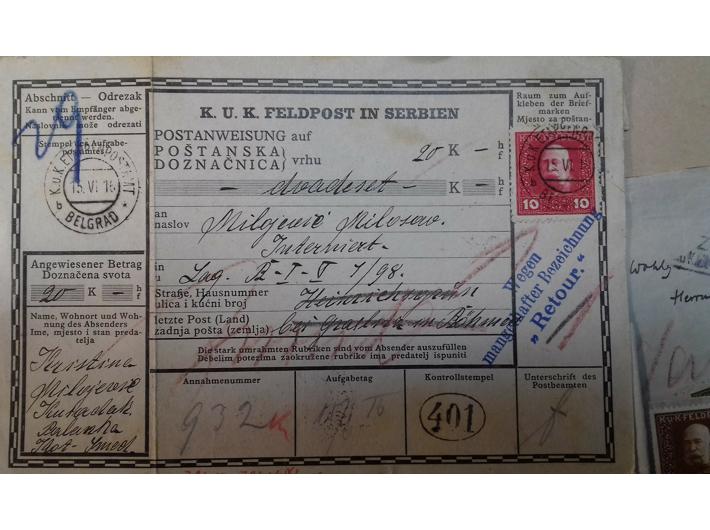 Abschnitt — Odrezak
Kann vom Empfänger abge-
trennt werden.
Naslovnik može odrezati
Stempel des Aufgabe-
postamtes
29
K.u.K. ETAPPENPOSTAMT
15. VI. 16
b BELGRAD *
Angewiesener Betrag
Doznačena svota
20 K — h f
Name, Wohnort und Woh-
nung des Absenders
Ime, mjesto i stan preda-
telja
Kristina
Milojević
Palanka
K. U. K. FELDPOST IN SERBIEN
POSTANWEISUNG auf
POŠTANSKA
DOZNAČNICA } vrhu 20 K — h f
— dvadeset — K — h f
an
naslov Milojević Milosav.
Interniert.
in
u Lag. B-I-V 7/98.
Straße, Hausnummer
ulica i kućni broj Heinrichsgrün
letzte Post (Land)
zadnja pošta (zemlja). bei Graslitz in Böhmen
Die stark umrahmten Rubriken sind vom Absender auszufüllen
Debelim potezima zaokružene rubrike ima predatelj ispuniti
Raum zum Auf-
kleben der Brief-
marken
Mjesto za poštan.
15. VI. 16
10 10
Wegen
mangelhafter Bezeichnung
„Retour.“
Annahmenummer
932
Aufgabetag
Kontrollstempel
401
Unterschrift des
Postbeamten
K.u.K. FELDP